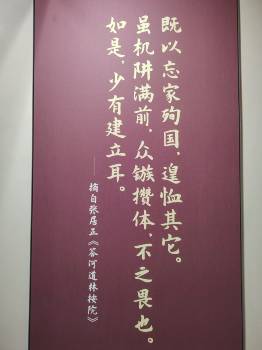 既以忘家殉国，遑恤其它。
虽机阱满前，众镞攒体，不之畏也。
如是，少有建立耳。
——摘自张居正《答河道林按院》